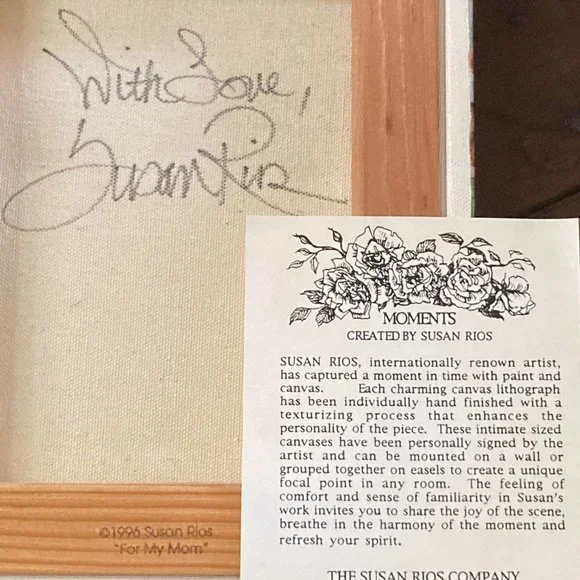 With Love,
Susan Rios
MOMENTS
CREATED BY SUSAN RIOS
SUSAN RIOS, internationally renown artist,
has captured a moment in time with paint and
canvas. Each charming canvas lithograph
has been individually hand finished with a
texturizing process that enhances the
personality of the piece. These intimate sized
canvases have been personally signed by the
artist and can be mounted on a wall or
grouped together on easels to create a unique
focal point in any room. The feeling of
comfort and sense of familiarity in Susan's
work invites you to share the joy of the scene,
breathe in the harmony of the moment and
refresh your spirit.
THE SUSAN RIOS COMPANY
©1996 Susan Rios
"For My Mom"